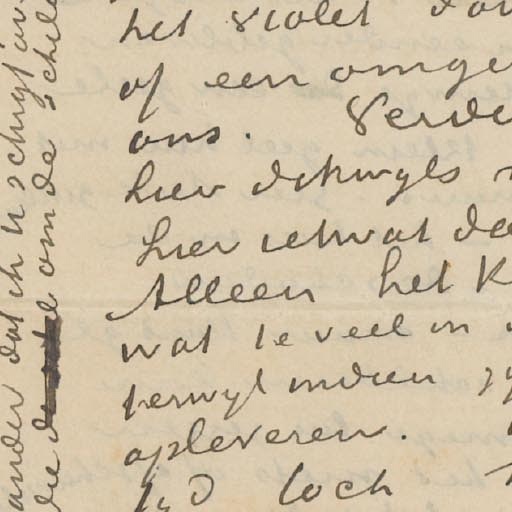 het violet
of een
ons. Verde
hier dikwyls
hier ietwat
Alleen het K
wat te veel in
terwyl indien zy
opleveren.
toch
ander dat ik U schryf
die de om de schil